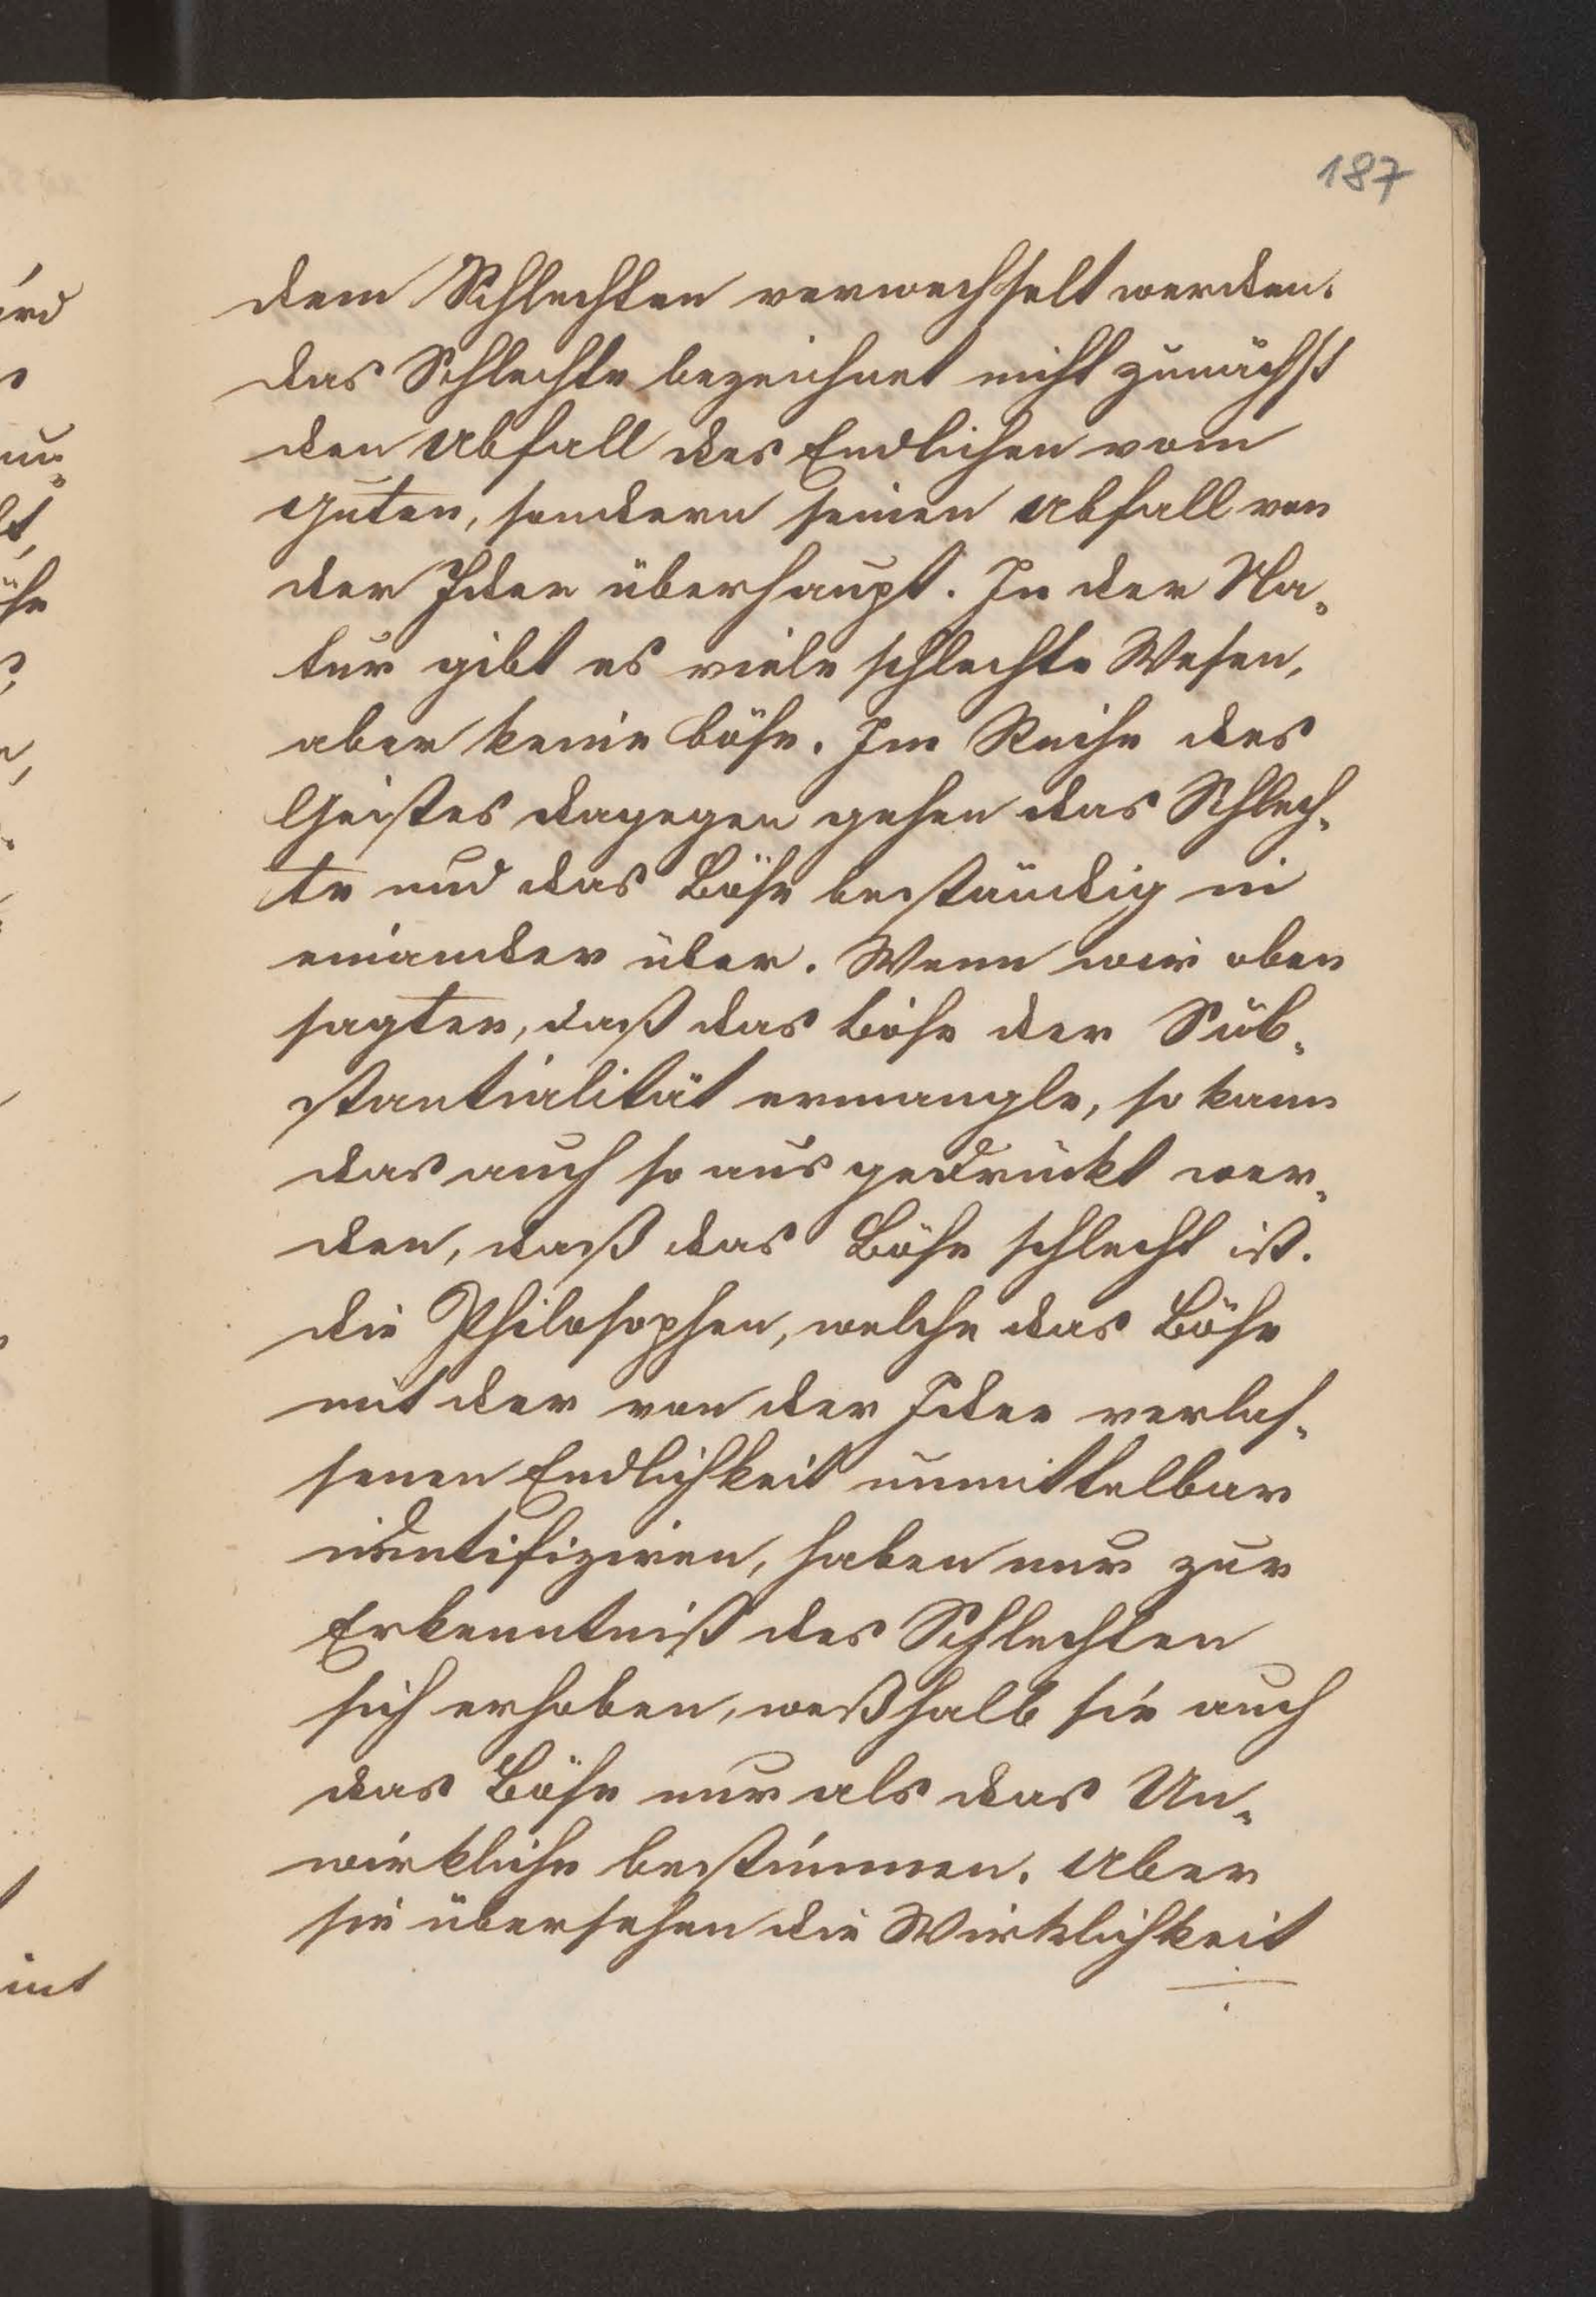 187
dem Schlechten verwechselt werden.
das Schlechte bezeichnet nicht zunächst
den Abfall des Endlichen vom
Guten, sondern seinen Abfall von
der Idee überhaupt. In der Na„
tur gibt es viele schlechte Wesen,
aber keine böse. Im Reiche des
Geistes dagegen gehen das Schlech„
te und das Böse beständig in
einander über. Wenn wir oben
sagten, daß das Böse der Sub„
stantialität ermangle, so kann
das auch so ausgedrückt wer„
den, daß das Böse schlecht ist.
die Philosophen, welche das Böse
mit der von der Idee verlas„
senen Endlichkeit unmittelbar
identifiziren, haben nur zur
Erkenntniß des Schlechten
sich erhoben, weßhalb sie auch
das Böse nur als das Un„
wirkliche bestimmen. Aber
sie übersehen die Wirklichkeit